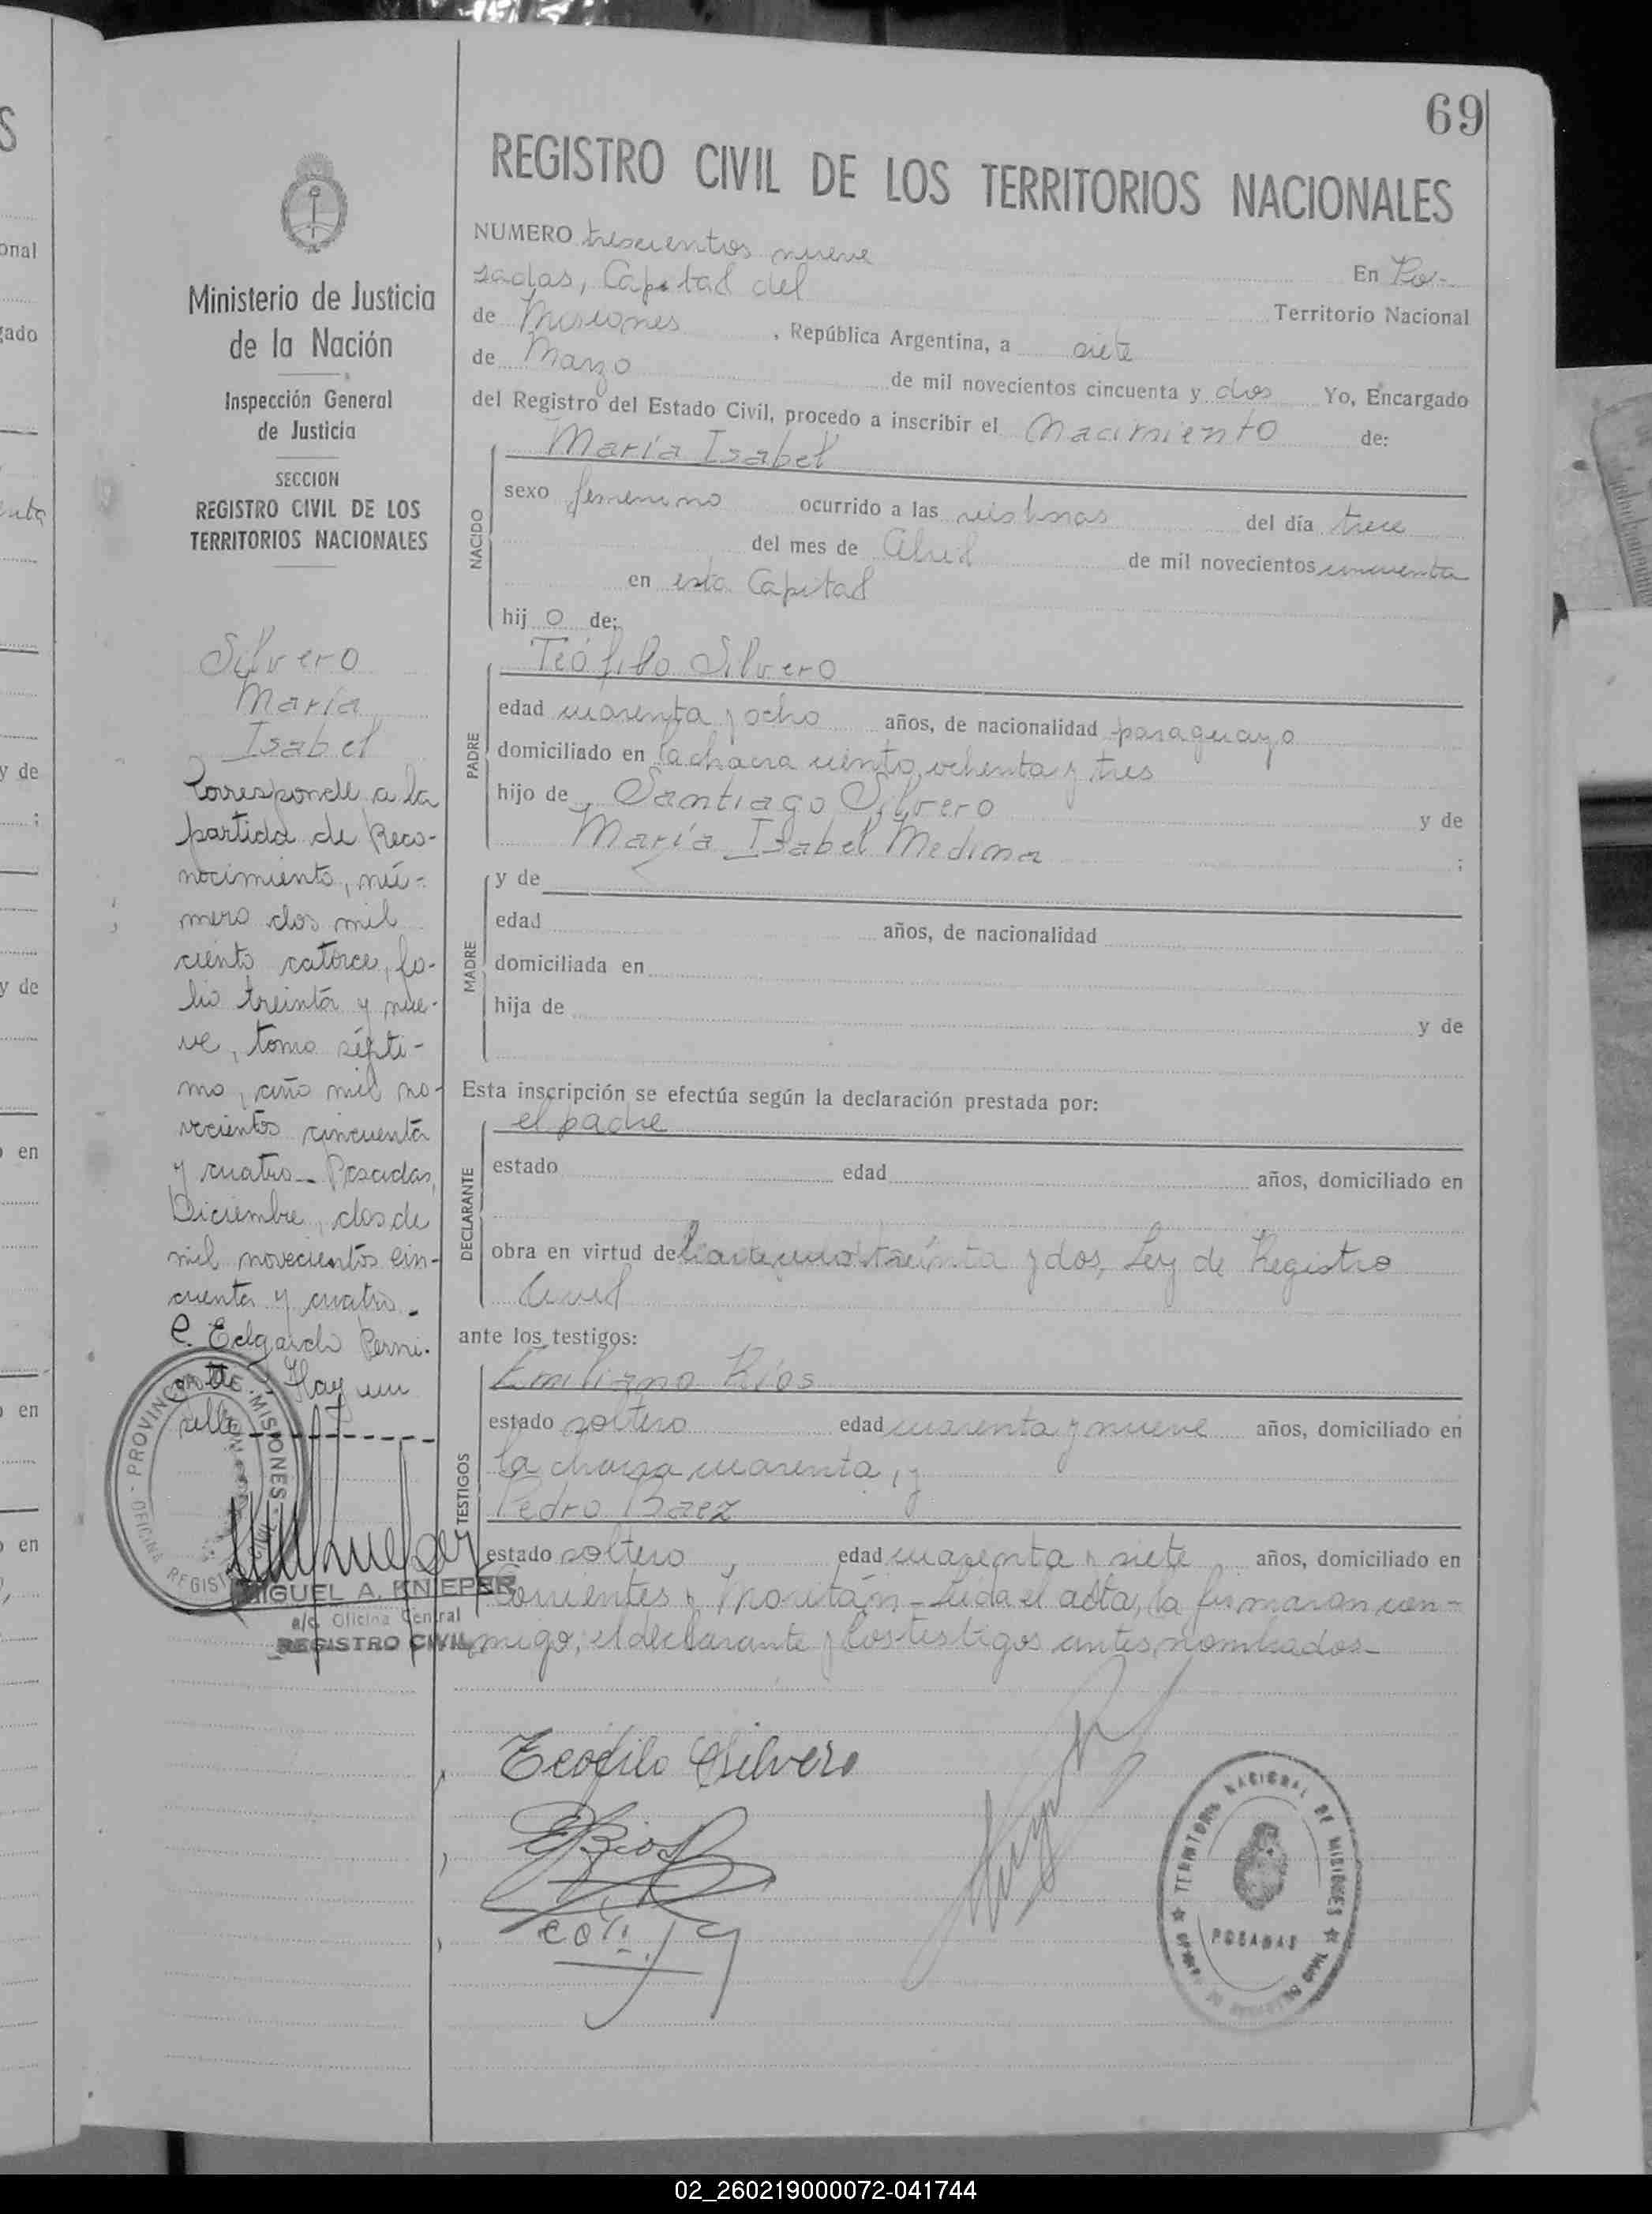 69
REGISTRO CIVIL DE LOS TERRITORIOS NACIONALES
Ministerio de Justicia
de la Nación
Inspección General
de Justicia
SECCION
REGISTRO CIVIL DE LOS
TERRITORIOS NACIONALES
Silvero
María
Isabel
Corresponde a la
partida de Reco-
nocimiento, nú-
mero dos mil
ciento catorce, fo-
lio treinta y nue-
ve, tomo sépti-
mo, año mil no-
vecientos cincuenta
y cuatro. Posadas,
Diciembre, dos de
mil novecientos cin-
cuenta y cuatro.
C. Edgardo
Hay un
sello
PROVINCIA DE MISIONES
OFICINA
MIGUEL A. KNIEPER
a/c Oficina Central
REGISTRO CIVIL
NUMERO trescientos nueve
En Po-
sadas, Capital del
Territorio Nacional
de Misiones, República Argentina, a siete
de Marzo de mil novecientos cincuenta y dos Yo, Encargado
del Registro del Estado Civil, procedo a inscribir el Nacimiento de:
NACIDO
María Isabel
sexo femenino ocurrido a las del día trece
del mes de Abril de mil novecientos cincuenta
en esta Capital
hij o de:
PADRE
Teófilo Silvero
edad cuarenta y ocho años, de nacionalidad paraguayo
domiciliado en la chacra ciento ochenta y tres
hijo de Santiago Silvero y de
María Isabel Medina ;
MADRE
y de
edad años, de nacionalidad
domiciliada en
hija de y de
Esta inscripción se efectúa según la declaración prestada por:
DECLARANTE
el padre
estado edad años, domiciliado en
obra en virtud del treinta y dos, Ley de Registro
Civil
ante los testigos:
TESTIGOS
Emiliano Ríos
estado soltero edad cuarenta y nueve años, domiciliado en
la chacra cuarenta, y
Pedro Baez
estado soltero, edad cuarenta y siete años, domiciliado en
Corrientes y - Leida el acta, la firmaron con-
migo, el declarante y los testigos antes nombrados-
Teofilo Silvero
ERios
TERRITORIO NACIONAL DE MISIONES
POSADAS
02_260219000072-041744